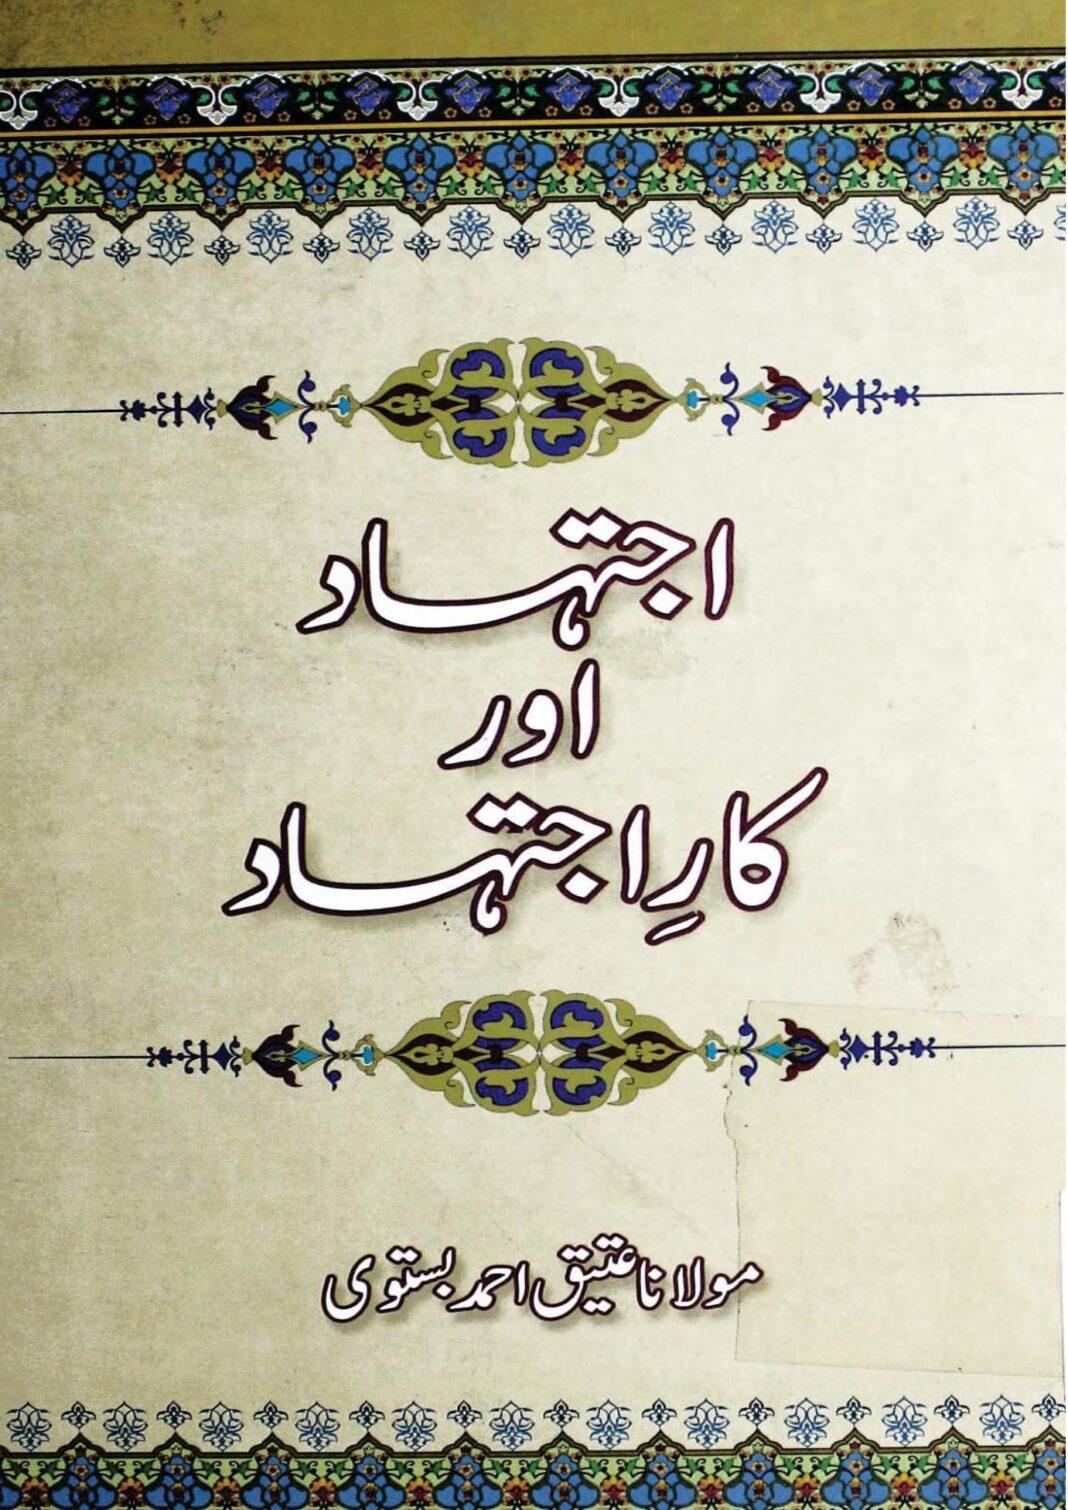 اجتہاد
اور
کارِ اجتہاد
مولانا عتیق احمد بستوی